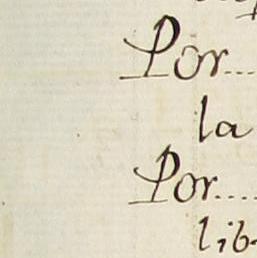 Por....
la
Por....
lib